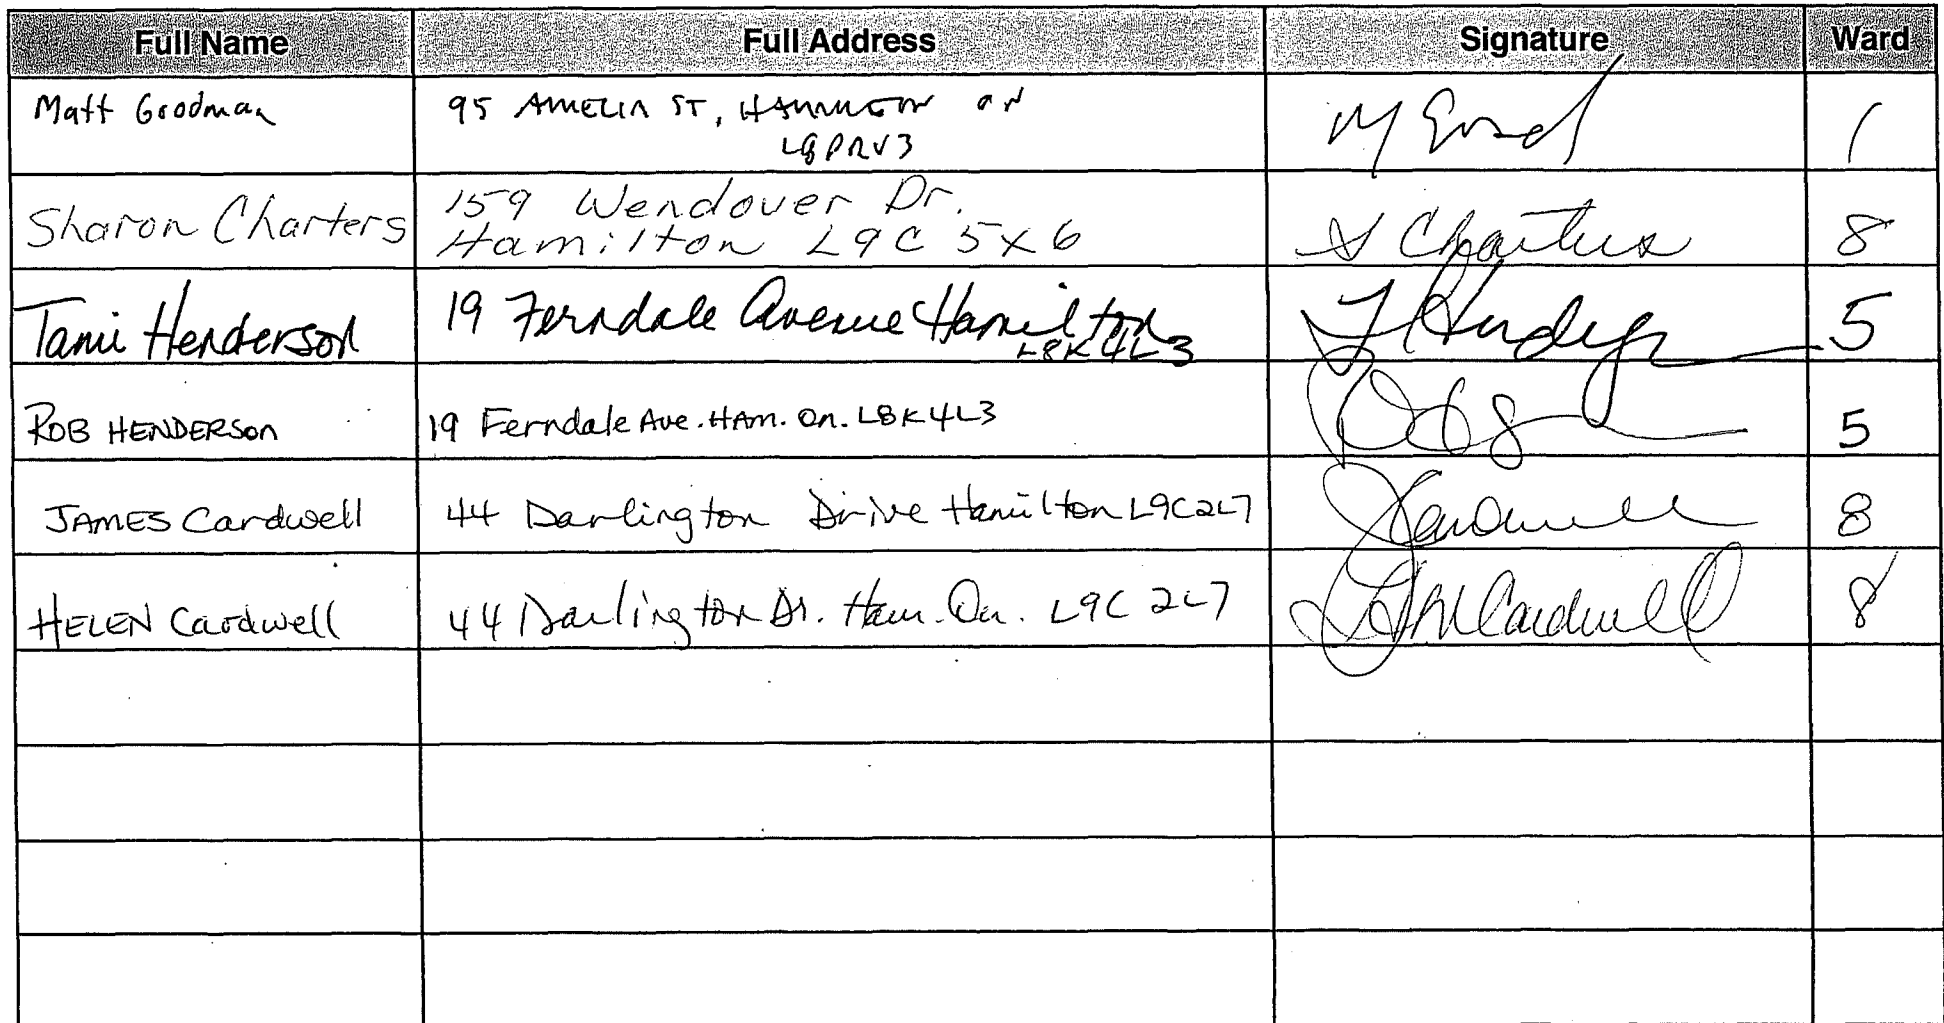 Full Name Full Address Signature Ward
Matt Goodman 95 AMELIA ST, HAMILTON ON 1
L8P2V3
Sharon Charters 159 Wendover Dr. S Charters 8
Hamilton L9C 5X6
Tami Henderson 19 Ferndale Avenue Hamilton 5
L8K4L3
ROB HENDERSON 19 Ferndale Ave. HAm. On. L8K4L3 5
JAMES Cardwell 44 Darlington Drive Hamilton L9C2L7 J Cardwell 8
HELEN Cardwell 44 Darlington Dr. Ham. On. L9C 2L7 Cardwell 8